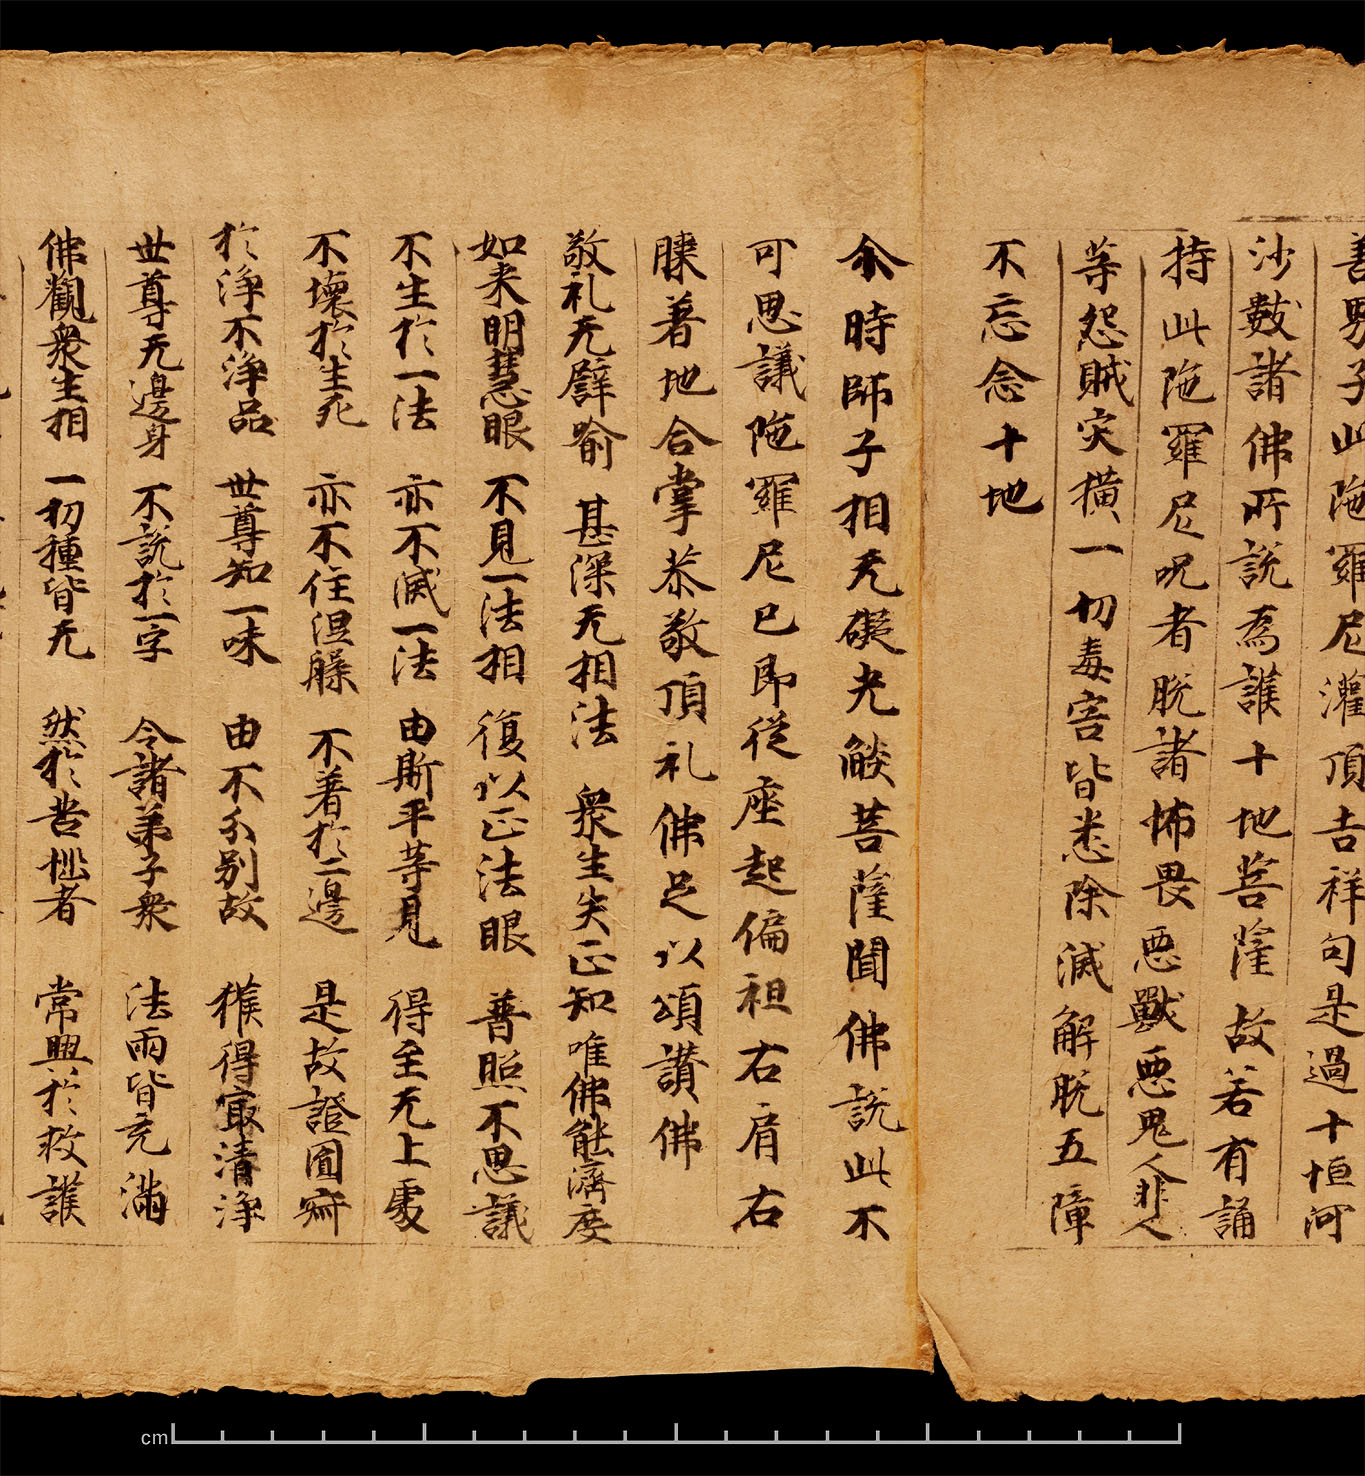 善男子此陁羅尼灌頂吉祥句是過十恒河
沙數諸佛所説為護十地菩薩故若有誦
持此陁羅尼呪者脱諸怖畏惡獸惡鬼人非人
等怨賊灾横一切毒害皆悉除滅解脱五障
不忘念十地
尒時師子相无礙光焰菩薩聞佛説此不
可思議陁羅尼已即從座起偏袒右肩右
膝著地合掌恭敬頂礼佛足以頌讃佛
敬礼无譬喻 甚深无相法 衆生失正知 唯佛能濟度
如来明慧眼 不見一法相 復以正法眼 普照不思議
不生於一法 亦不滅一法 由斯平等見 得至无上處
不壞於生死 亦不住涅槃 不著於二邊 是故證圓寂
於淨不淨品 世尊知一味 由不分别故 獲得寂清淨
世尊无邊身 不説於一字 令諸弟子衆 法雨皆充滿
佛觀衆生相 一切種皆无 然於苦惱者 常興於救護